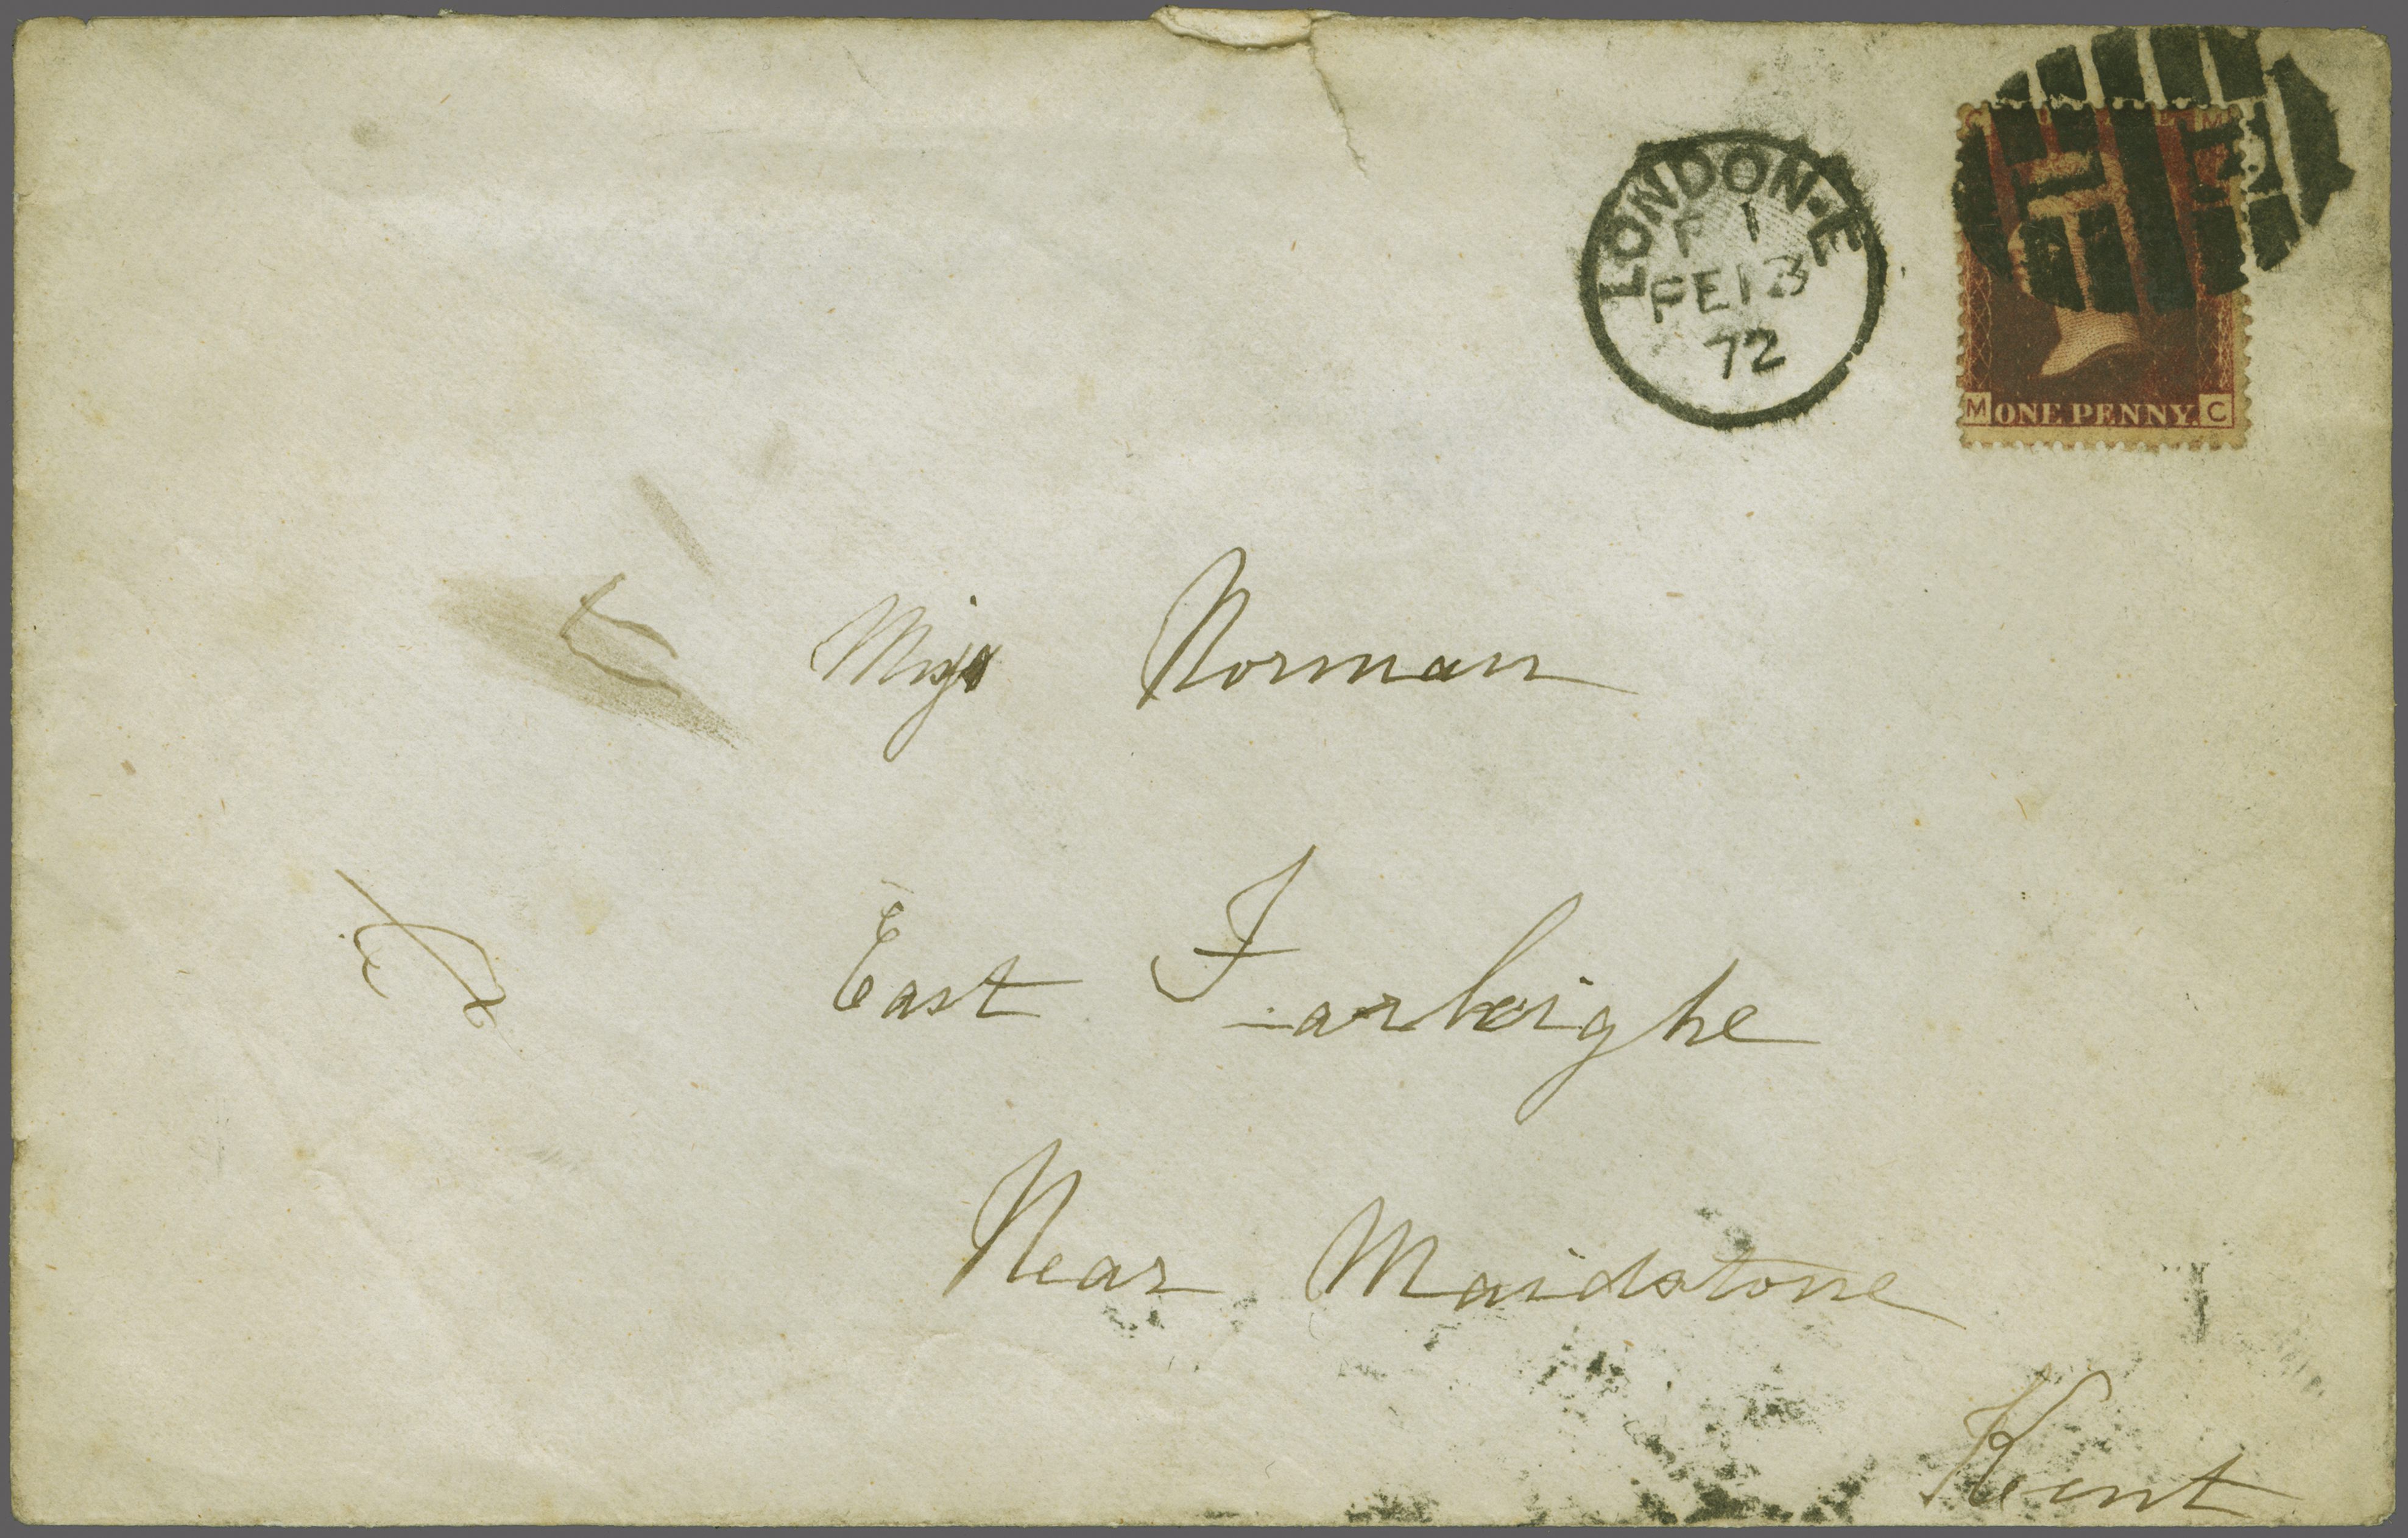 LONDON·E
F 1
FE 13
72
C M
M ONE PENNY. C
Miss Norman
East Farleighe
Near Maidstone
Kent